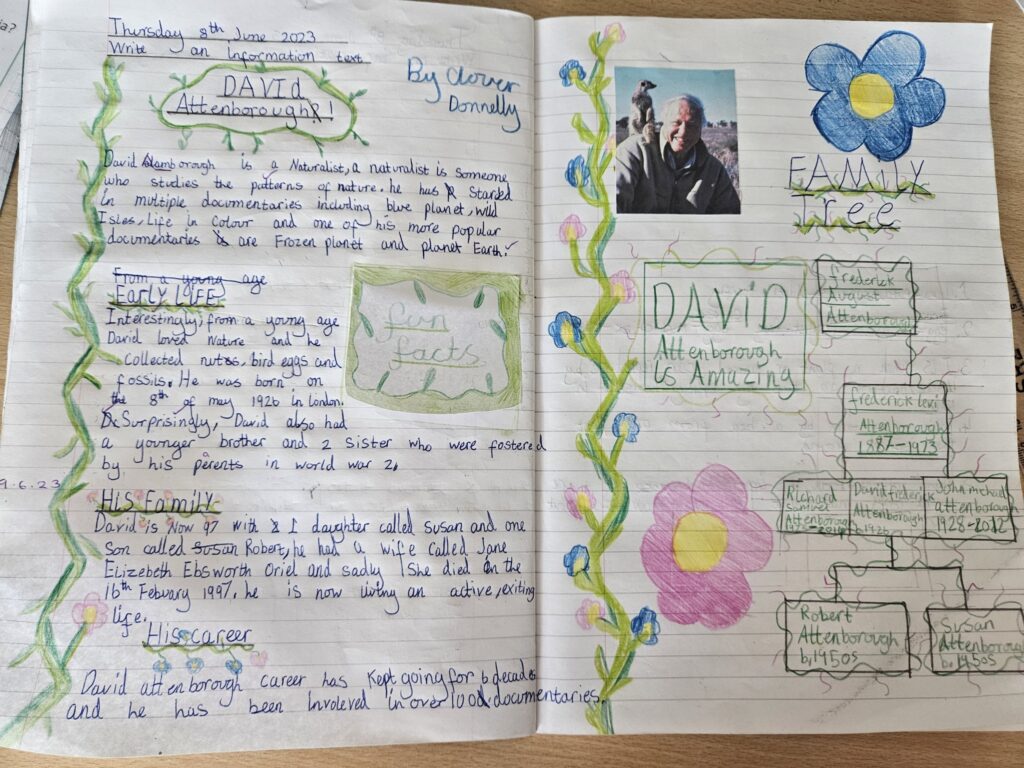 Thursday 8th June 2023
Write an Information text
DAVID
Attenborough!
By Clover
Donnelly
David borough is a Naturalist, a naturalist is someone
who studies the patterns of nature. he has Starred
in multiple documentaries including blue planet, wild
Isles, Life in Colour and one of his more popular
documentaries are Frozen planet and planet Earth.
From a young age
Early LIFE
Interestingly, from a young age
David loved Nature and he
collected nuts, bird eggs and
fossils. He was born on
the 8th of may 1926 in London.
Surprisingly, David also had
a younger brother and 2 sister who were fostered
by his perents in world war 2.
9.6.23
His Family
David is Now 97 with 1 daughter called Susan and one
son called Susan Robert, he had a wife called Jane
Elizebeth Ebsworth Oriel and sadly She died on the
16th Febuary 1997. he is now living an active, exiting
life.
His career
David attenborough career has kept going for 6 decades
and he has been involeved in over 100 documentaries.
fun
facts
FAMILY
Tree
DAVID
Attenborough
Is Amazing
frederick
August
Attenborough
frederick levi
Attenborough
1887-1973
Richard
Samuel
Attenborough
David frederick
Attenborough
b.1926
John michael
attenborough
1928-2012
Robert
Attenborough
b,1950s
Susan
Attenborough
b,1950s